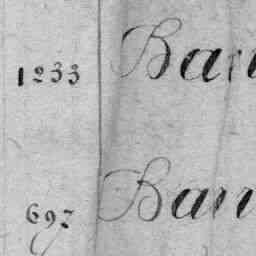 1233 Bar
697 Ban